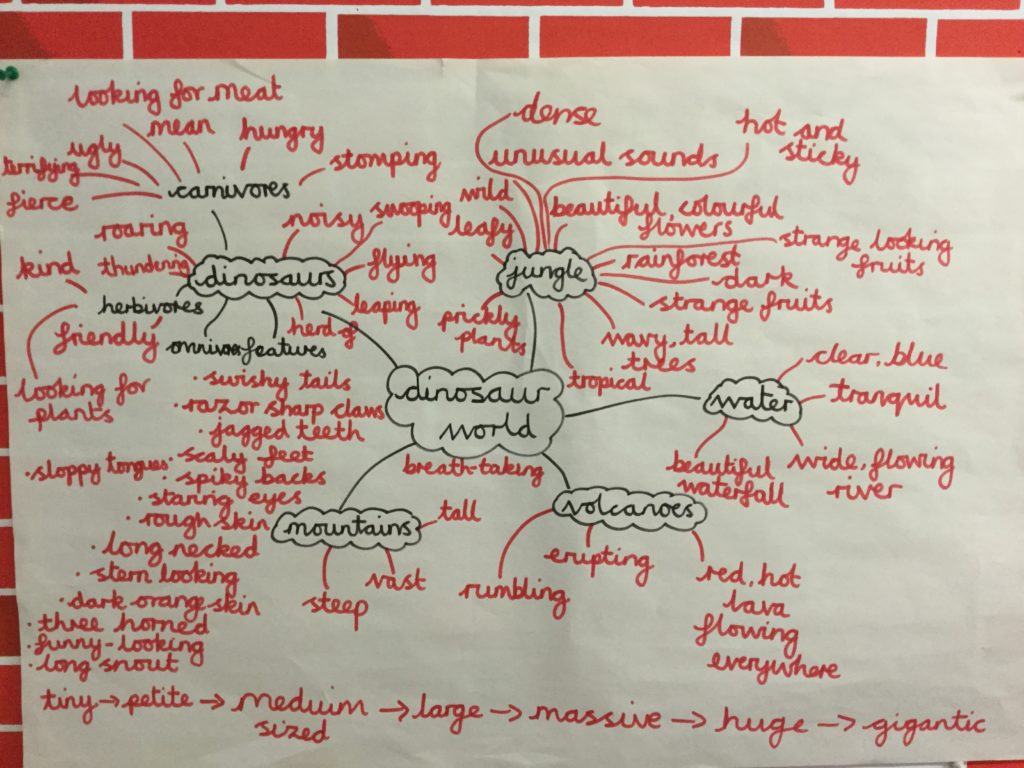 looking for meat
mean
hungry
ugly
terrifying
fierce
carnivores
stomping
roaring
noisy
swooping
kind
thundering
dinosaurs
flying
herbivores
leaping
friendly
herd of
features
looking for
plants
· swishy tails
· razor sharp claws
· jagged teeth
· scaly feet
· sloppy tongues
· spiky backs
· staring eyes
· rough skin
· long necked
· stern looking
· dark orange skin
· three horned
· funny-looking
· long snout
dense
unusual sounds
hot and
sticky
wild
leafy
beautiful, colourful
flowers
jungle
strange looking
fruits
rainforest
dark
strange fruits
prickly
plants
wavy, tall
trees
tropical
dinosaur
world
breath-taking
water
clear, blue
tranquil
beautiful
waterfall
wide, flowing
river
mountains
tall
steep
vast
volcanoes
erupting
rumbling
red, hot
lava
flowing
everywhere
tiny → petite → meduim → large → massive → huge → gigantic
sized